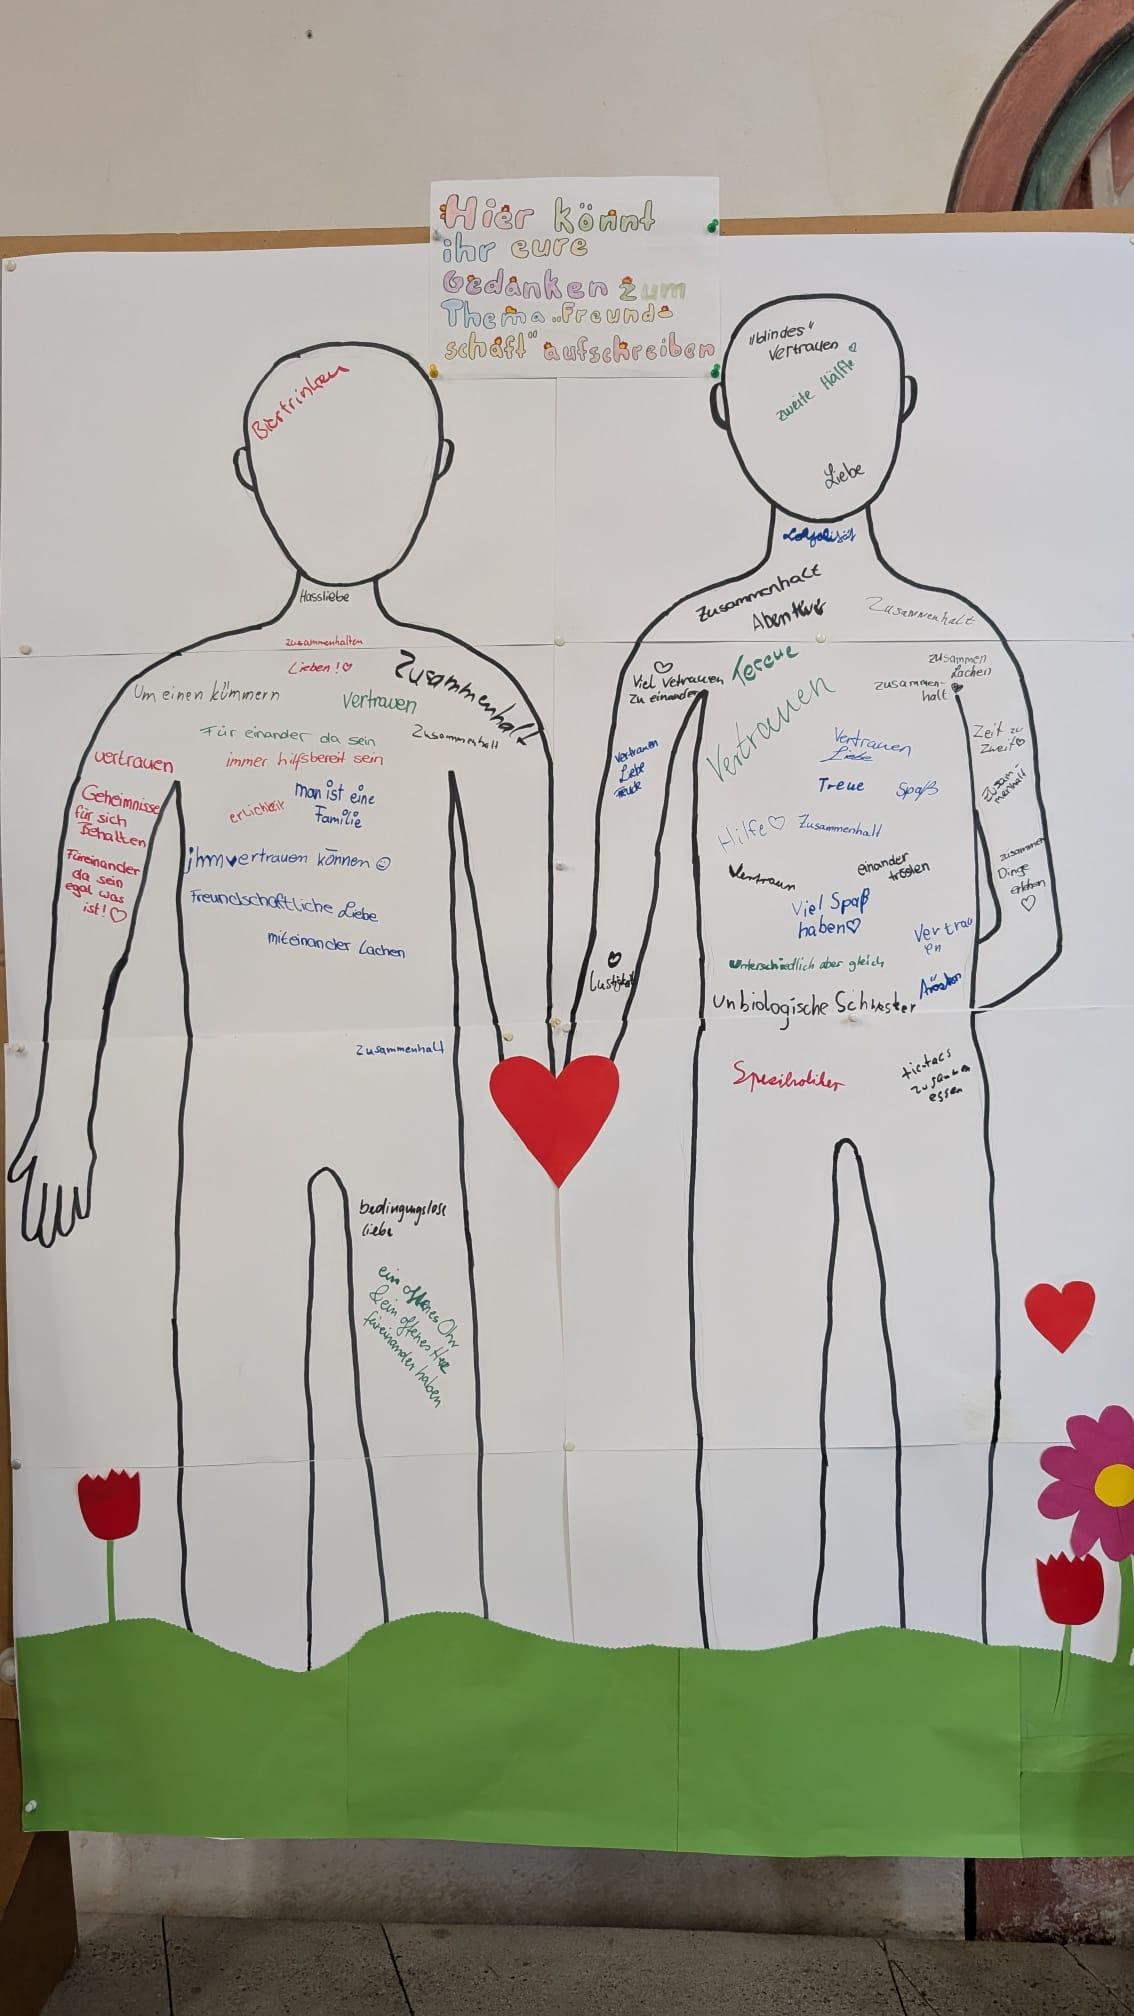 Hier könnt
ihr eure
Gedanken zum
Thema „Freund-
schaft" aufschreiben
Biertrinken
Hassliebe
zusammenhalten
Lieben! ♡
Zusammenhalt
Um einen kümmern
Vertrauen
Für einander da sein
Zusammenhalt
immer hilfsbereit sein
vertrauen
Geheimnisse
für sich
Behalten
Füreinander
da sein
egal was
ist! ♡
erlichkeit
man ist eine
Familie
ihm ♥ vertrauen können ☺
Freundschaftliche Liebe
miteinander Lachen
Zusammenhalt
bedingungslose
Liebe
ein offenes Ohr
& ein offenes Herz
füreinander haben
"blindes"
Vertrauen
zweite Hälfte
Liebe
Zusammenhalt
Abenteuer
Zusammenhalt
♡
Viel Vetrauen
zu einander
Tereue
Vertrauen
zusammen
Lachen
zusammen-
halt ♥
Vertrauen
Liebe
Vertrauen
Liebe
Treue
Spaß
Zeit zu
Zweit ♡
Zusam-
menhalt
Hilfe ♡
Zusammenhalt
Vertraun
einander
trösten
zusammen
Dinge
erleben
♡
Viel Spaß
haben ♡
Vertrau
en
Unterschiedlich aber gleich
♥
Lustigkeit
Unbiologische Schwester
Speziholiker
tictacs
zusammen
essen